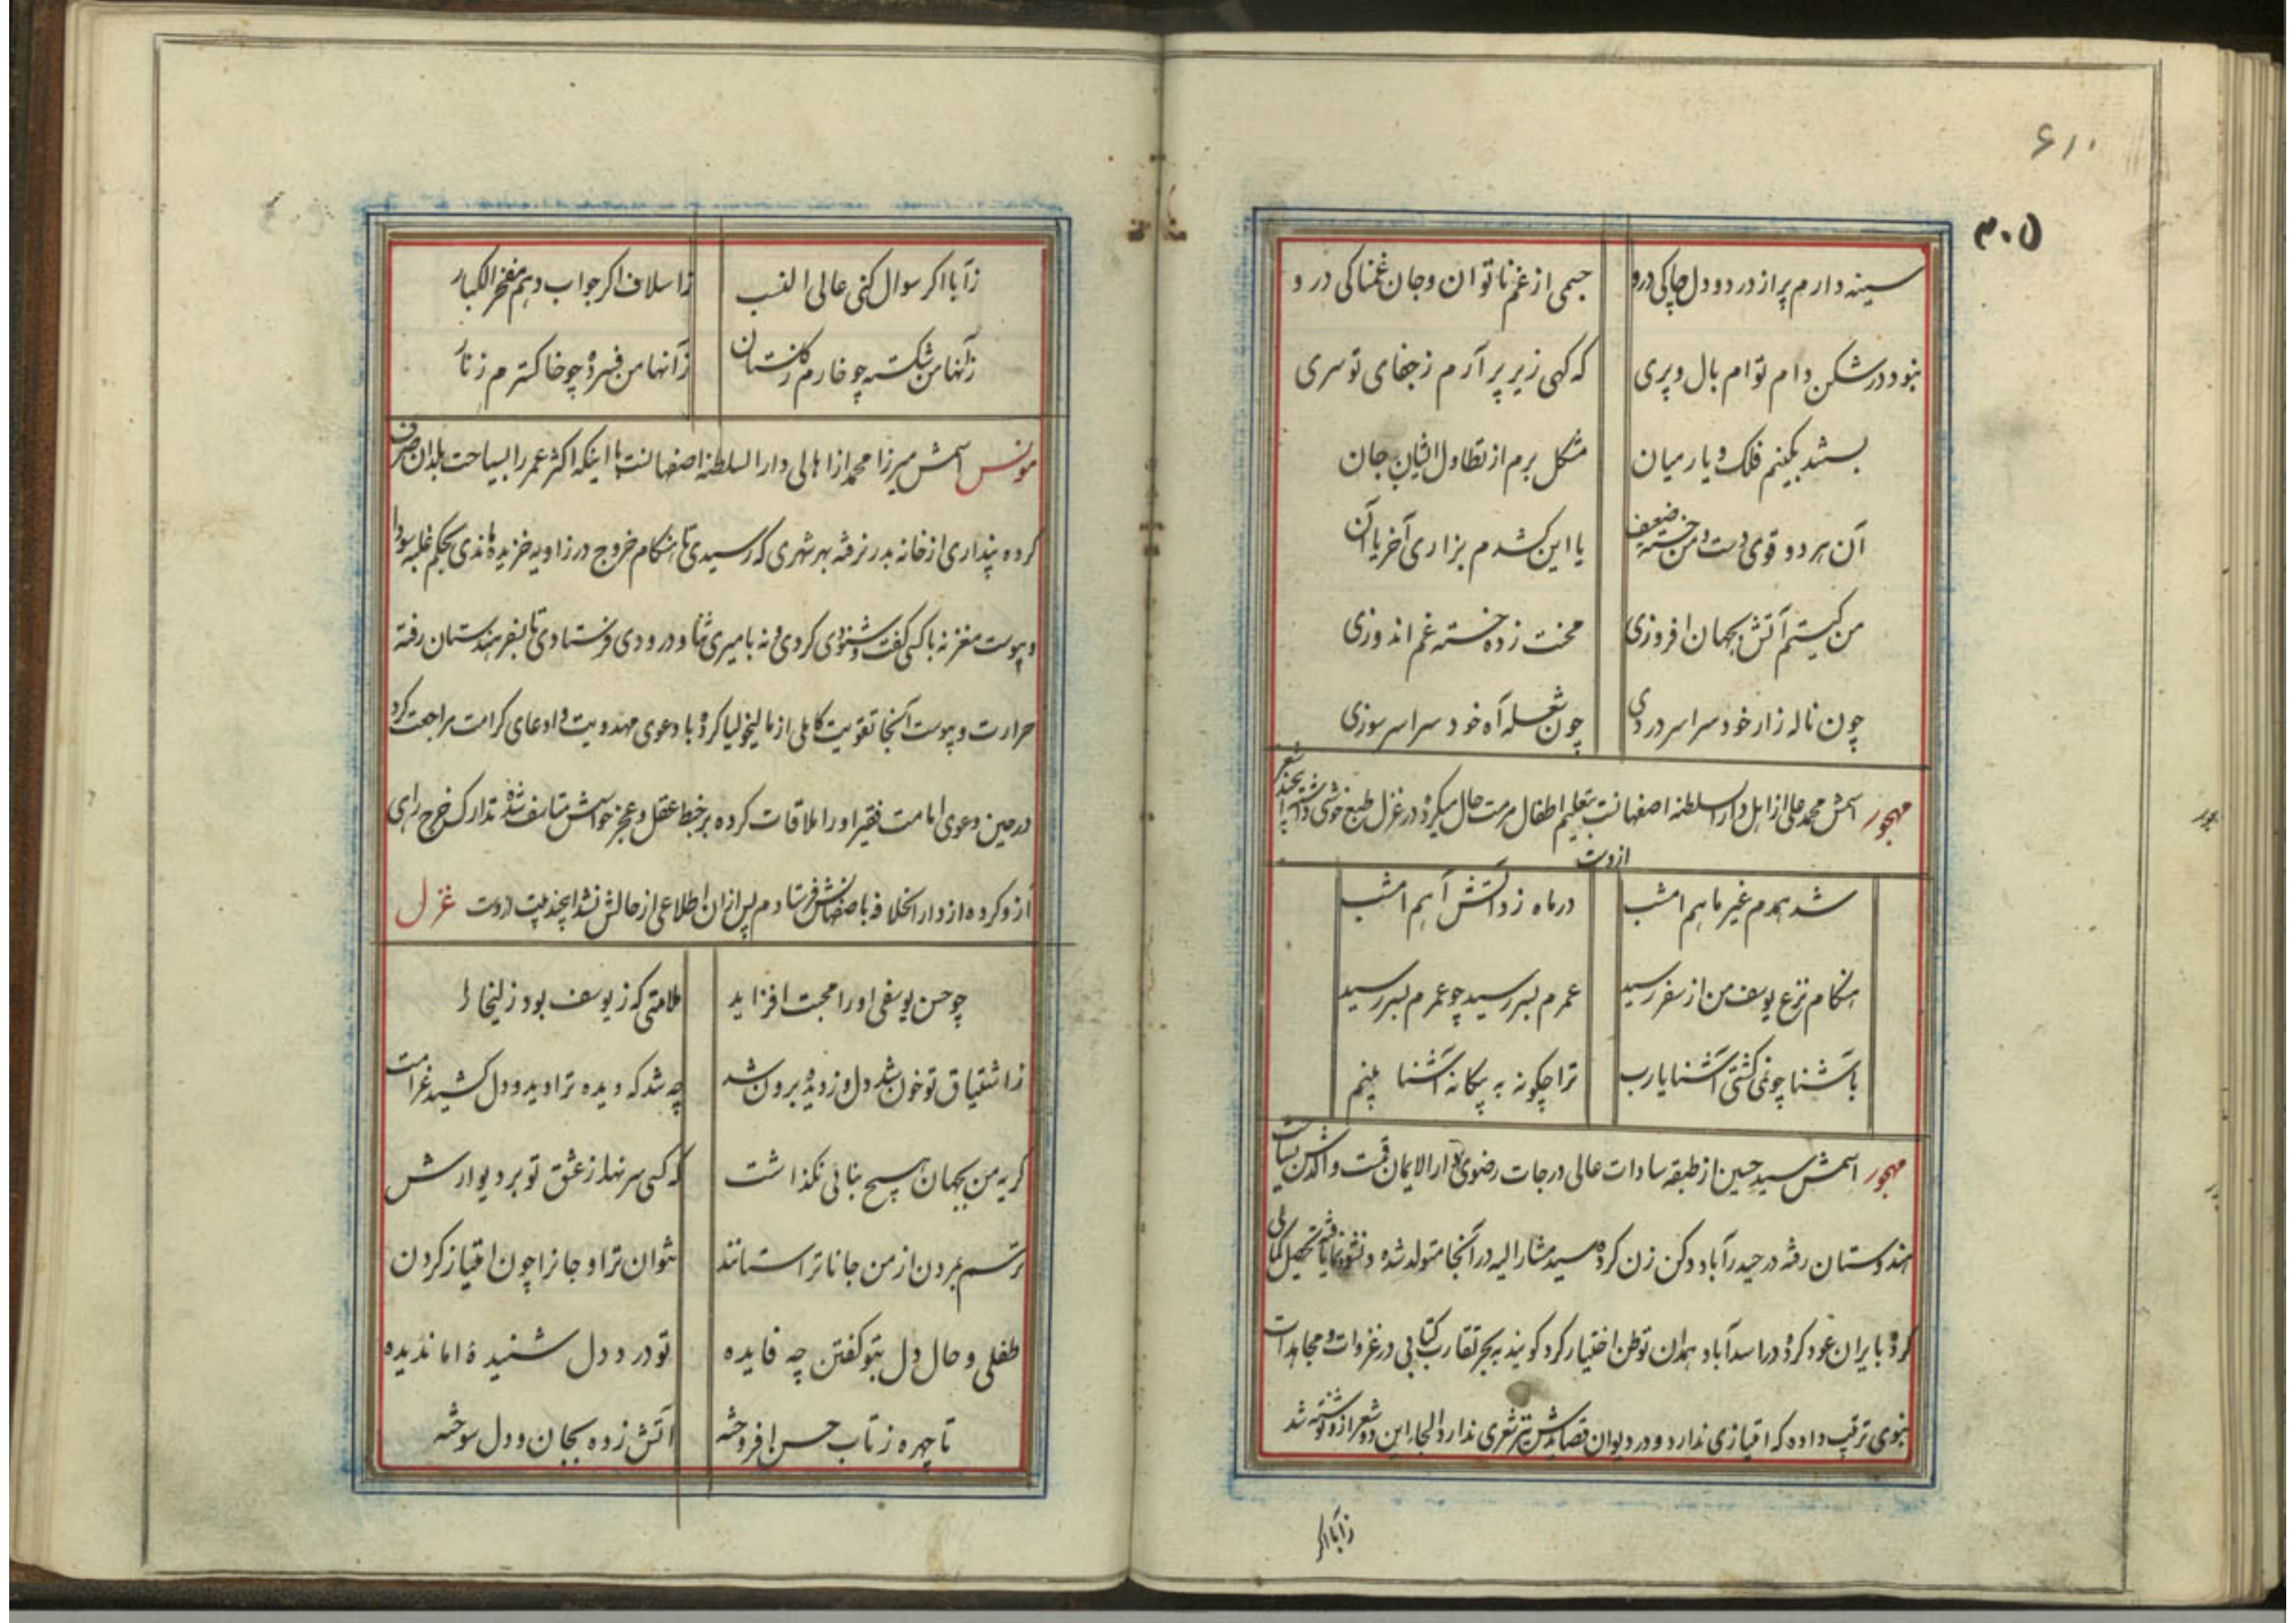 ۶۱۰
۳۰۵
سینه دارم پر از درد و دل چاکی درو جسمی از غم ناتوان و جان غمناکی درو
نبود در شکن دام توام بال و پری که کهی زیر پر آرم ز جفای تو سری
بستند بکینم فلک و یار میان مشکل برم از تطاول ایشان جان
آن هر دو قوی دست و من خسته ضعیف با این کشدم بزاری آخر یا آن
من کیستم آتش بجهان افروزی محنت زده خسته غم اندوزی
چون ناله زار خود سراسر دردی چون شعله آه خود سراسر سوزی
مهجور اسمش محمد علی از اهل دار السلطنه اصفهانست بتعلیم اطفال مرمت حال میکرده در غزل طبع خوشی داشته
ازوست
شد همدم غیر ماهم امشب در ماه زد آتش آهم امشب
هنکام نزع یوسف من از سفر رسید عمرم بسر رسید چو عمرم بسر رسید
باشنا چو نمی کشتی آشنا یا رب ترا چکونه به بیکانه آشنا بینم
مهجور اسمش سید حسین از طبقه سادات عالی درجات رضوی دار الایمان قمست والدش
هندوستان رفته در حیدرآباد دکن زن کرده سید مشار الیه در آنجا متولد شده و نشو و نما یافته تحصیل کمالی
کرده بایران عود کرده در اسدآباد همدان توطن اختیار کرد کویند به بحر تقارب کتابی در غزوات و مجاهدات
نبوی ترتیب داده که امتیازی ندارد و در دیوان قصایدش نیز شعری ندارد این دو شعر ازو نوشته شد
ز آبا اکر
ز آبا اکر سوال کنی عالی النسب ز اسلاف اکر جواب دهم مفخر الکبار
ز آنها من شکسته چو خارم ز کلستان ز آنها من فسرده چو خاکسترم ز نار
مونس اسمش میرزا محمد از اهالی دار السلطنه اصفهانست با اینکه اکثر عمر را بسیاحت بلدان صرف
کرده پنداری از خانه بدر نرفته بهر شهری که رسیدی تا هنکام خروج در زاویه خزیده ماندی بحکم غلبه سودا
و یبوست مغز نه با کسی کفت و شنودی کردی و نه با میری ثنا و درودی فرستادی تا بسفر هندوستان رفته
حرارت و یبوست آنجا تقویت کاملی از مالیخولیا کرده با دعوی مهدویت و ادعای کرامت مراجعت کرد
در حین دعوی امامت فقیر او را ملاقات کرده بر خبط عقل و عجز حواسش متاسف شده تدارک خرج راهی
ازو کرده از دار الخلافه باصفهانش فرستادم پس از آن اطلاعی از حالش نشد اینچند بیت ازوست غزل
چو حسن یوسفی او را محبت افزاید ملامتی که ز یوسف بود زلیخا را
ز اشتیاق تو خون شد دل و ز دیده برون شد چه شد که دیده ترا دید و دل کشید غرامت
کریه من بجهان هیچ بنائی نکذاشت که کسی سر نهد از عشق تو بر دیوارش
ترسم بمردن از من جانا ترا ستانند نتوان ترا و جانرا چون امتیاز کردن
طفلی و حال دل بتو کفتن چه فایده تو درد دل شنیدۀ اما ندیده
تا چهره ز تاب حسن افروخته آتش زده بجان و دل سوخته